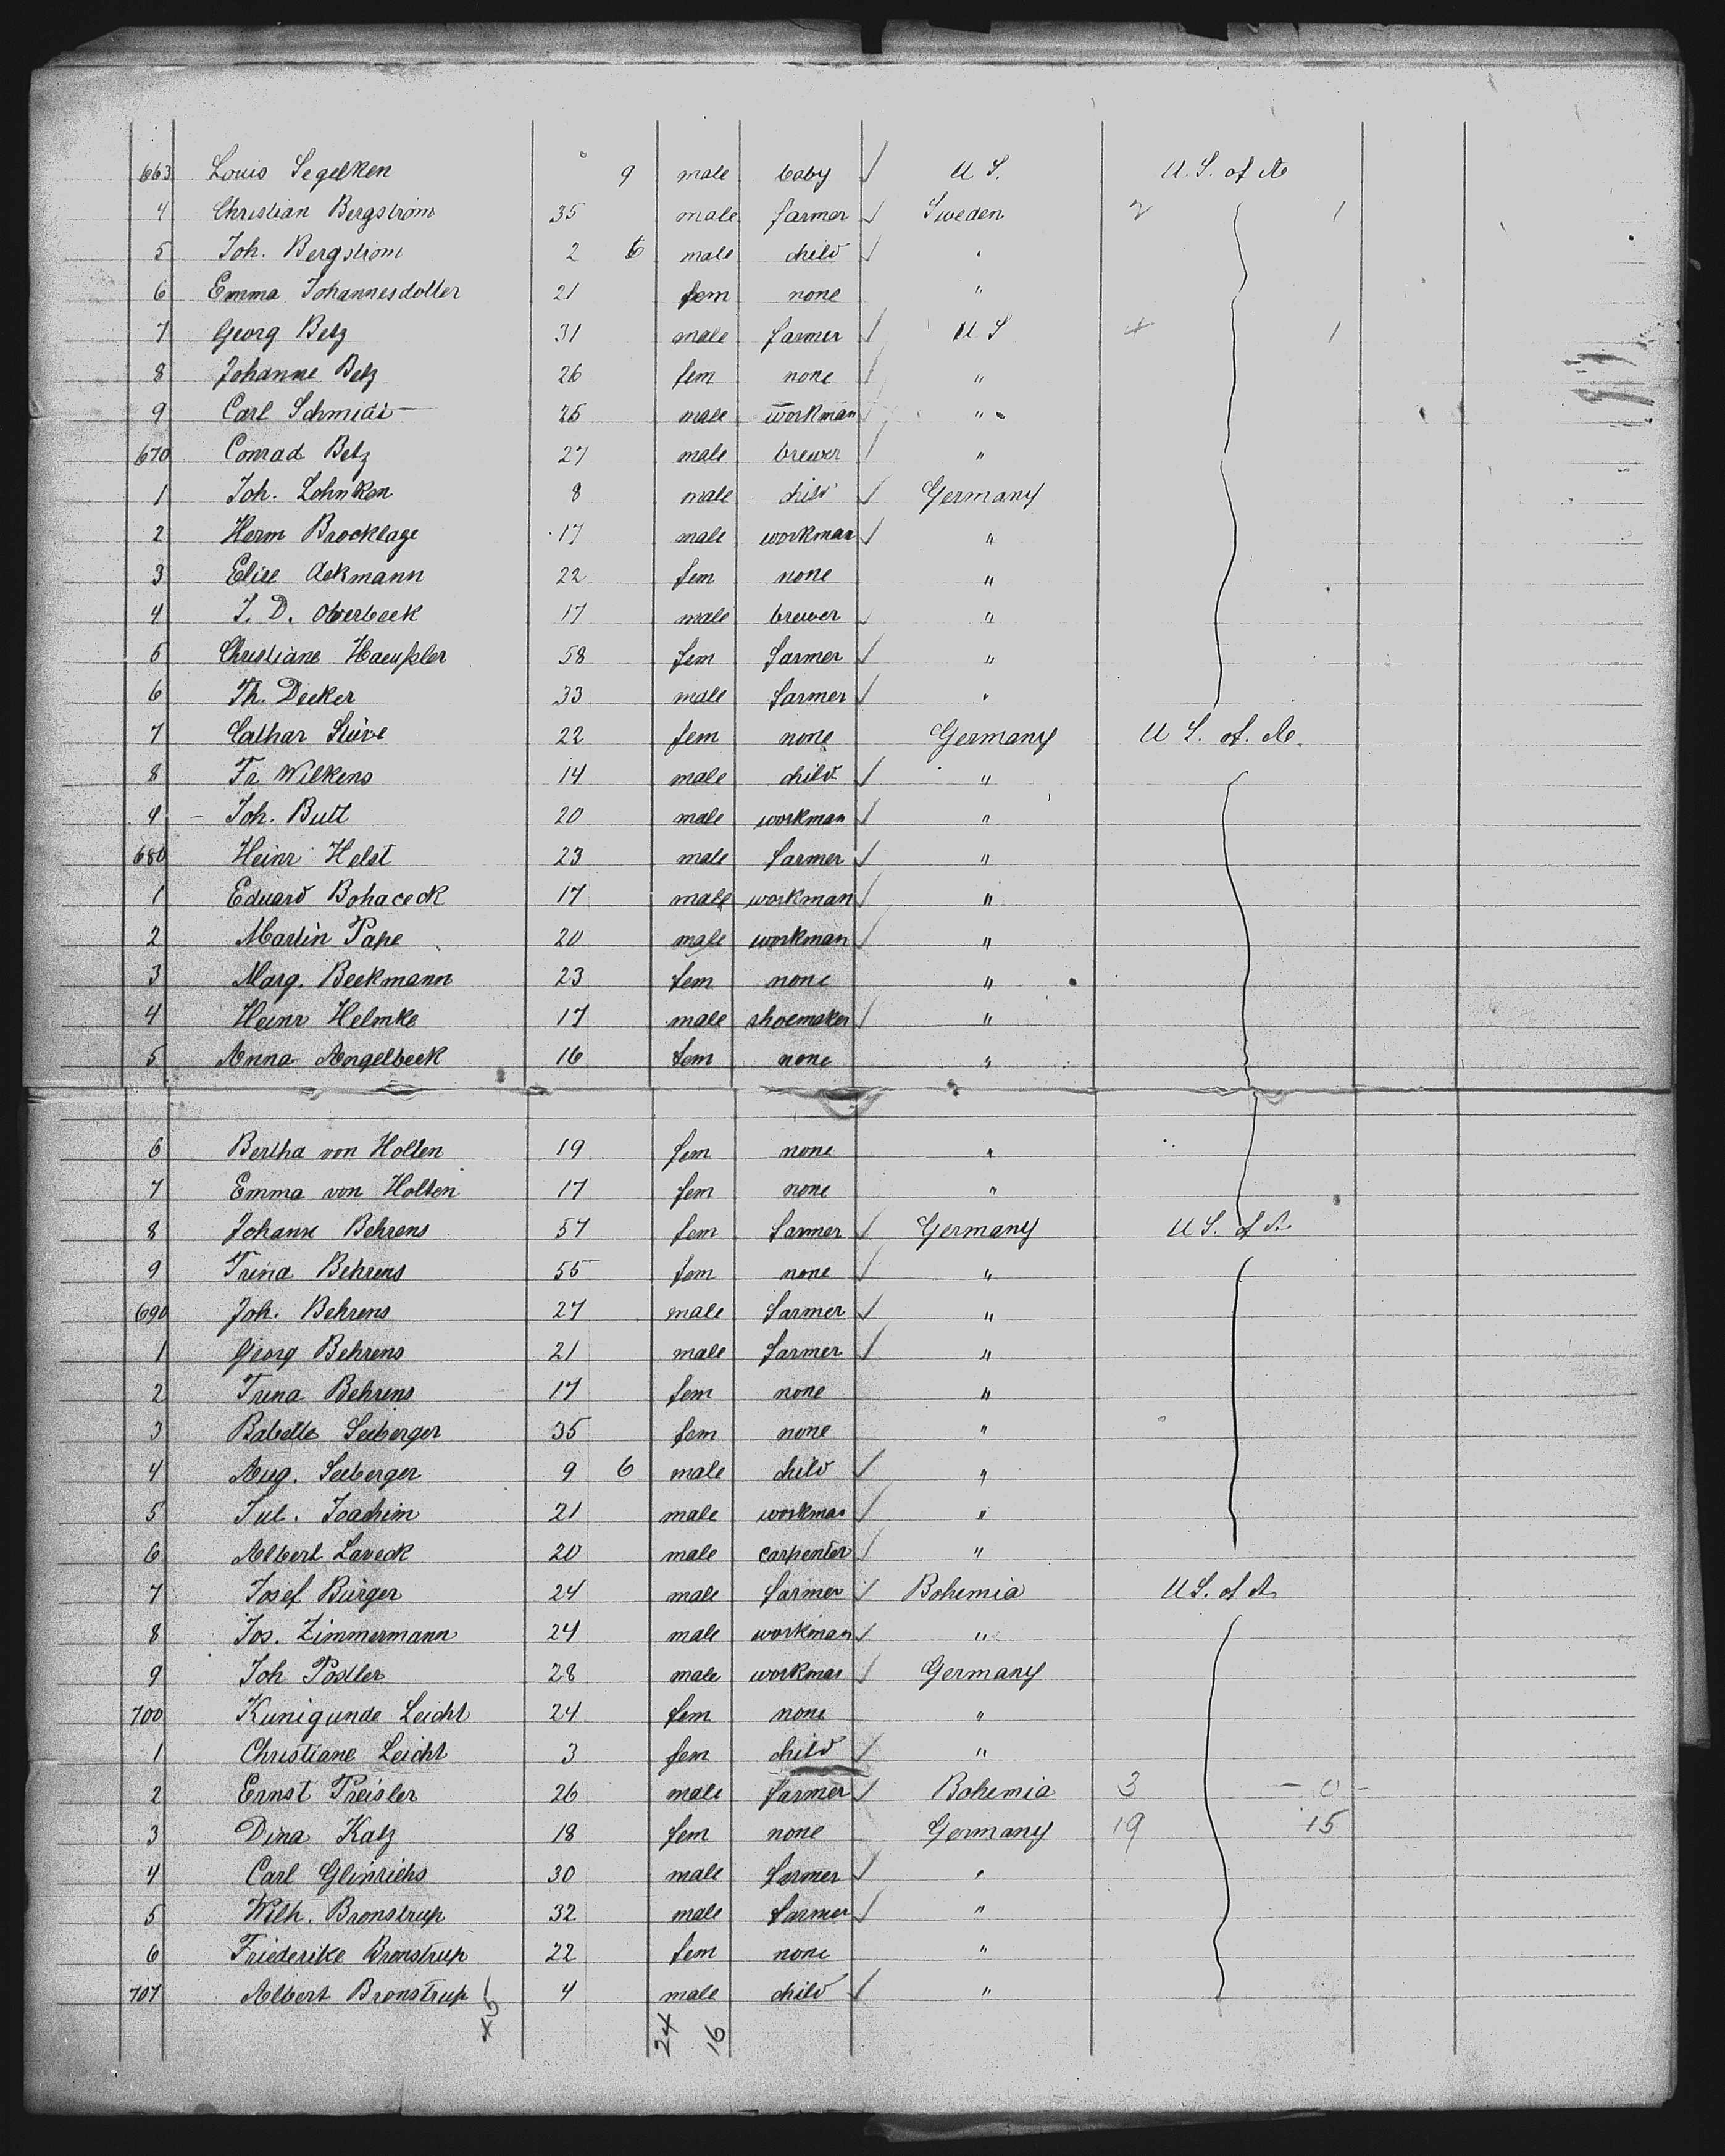 663 Louis Segelken 9 male baby √ U S. U. S. of A
4 Christian Bergstrom 35 male farmer √ Sweden 2 1
5 Joh. Bergstrom 2 6 male child √ "
6 Emma Johannesdotter 21 fem none "
7 Georg Betz 31 male farmer √ U S 4 1
8 Johanne Betz 26 fem none √ "
9 Carl Schmidt 25 male workman √ "
670 Conrad Betz 27 male brewer √ "
1 Joh. Lohnken 8 male child √ Germany
2 Herm Brocklage 17 male workman √ "
3 Elise Ackmann 22 fem none "
4 J. D. Overbeck 17 male brewer √ "
5 Christiane Haeußler 58 fem farmer √ "
6 Th. Decker 33 male farmer √ "
7 Cathar Stüve 22 fem none Germany U S. of. A.
8 Fr Wilkens 14 male child √ "
9 – Joh. Butt 20 male workman √ "
680 Heinr Helst 23 male farmer √ "
1 Eduard Bohaceck 17 male workman √ "
2 Martin Pape 20 male workman √ "
3 Marg. Beekmann 23 fem none "
4 Heinr Helmke 17 male shoemaker √ "
5 Anna Angelbeck 16 fem none "
6 Bertha von Holten 19 fem none "
7 Emma von Holten 17 fem none "
8 Johann Behrens 57 fem farmer √ Germany U S. of A.
9 Trina Behrens 55 fem none √ "
690 Joh. Behrens 27 male farmer √ "
1 Georg Behrens 21 male farmer √ "
2 Trina Behrens 17 fem none "
3 Babette Seeberger 35 fem none "
4 Aug. Seeberger 9 6 male child √ "
5 Jul. Joachim 21 male workman √ "
6 Albert Laveck 20 male carpenter √ "
7 Josef Bürger 24 male farmer √ Bohemia U S. of A
8 Jos. Zimmermann 24 male workman √ "
9 Joh Postler 28 male workman √ Germany
700 Kunigunde Leicht 24 fem none "
1 Christiane Leicht 3 fem child √ "
2 Ernst Preisler 26 male farmer √ Bohemia 3 – 0 –
3 Dina Katz 18 fem none Germany 19 15
4 Carl Glinrichs 30 male farmer √ "
5 Wilh. Bronstrup 32 male farmer √ "
6 Friederike Bronstrup 22 fem none "
707 Albert Bronstrup 4 male child √ "
24 16